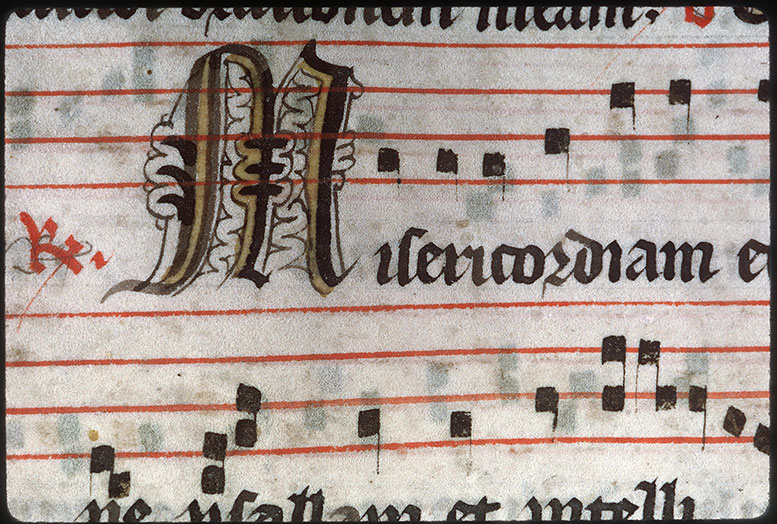 orationem meam. 
R. Misericordiam et
ne psallam et intelli